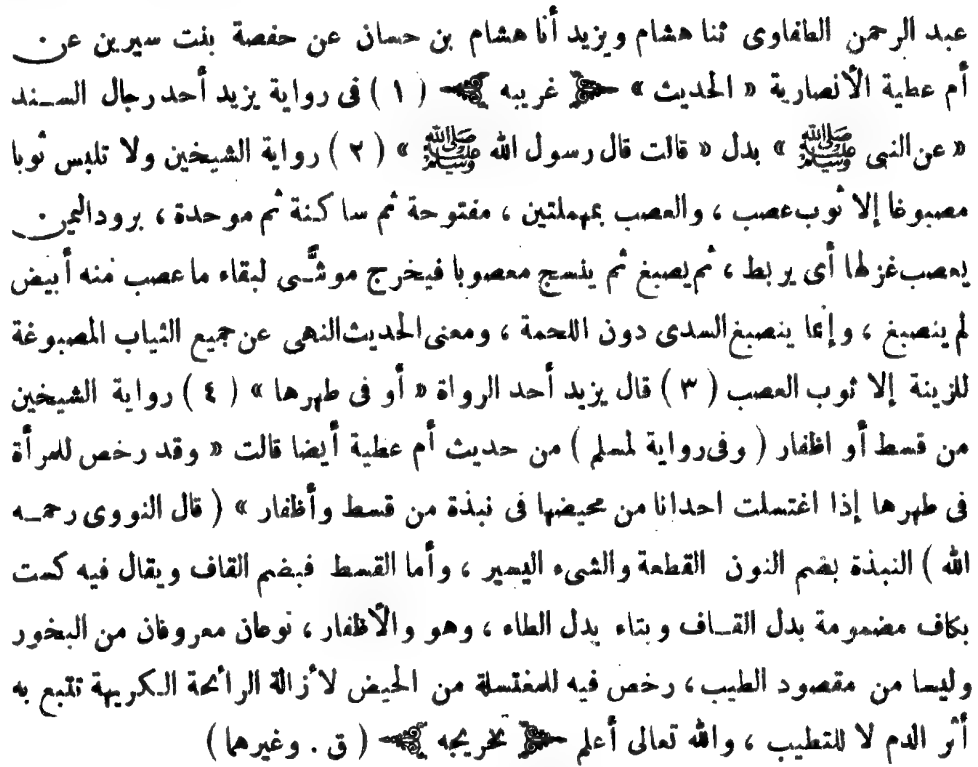 عبد الرحمن الطفاوى ثنا هشام ويزيد أنا هشام بن حسان عن حفصة بنت سيرين عن
أم عطية الأنصارية « الحديث » ﴿ غريبه ﴾ ( ١ ) فى رواية يزيد أحد رجال السند
« عن النبى ﷺ » بدل « قالت قال رسول الله ﷺ » ( ٢ ) رواية الشيخين ولا تلبس ثوبا
مصبوغا إلا ثوب عصب ، والعصب بمهملتين ، مفتوحة ثم ساكنة ثم موحدة ، برود اليمن
يعصب غزلها أى يربط ، ثم يصبغ ثم ينسج معصوبا فيخرج موشَّى لبقاء ما عصب منه أبيض
لم ينصبغ ، وإنما ينصبغ السدى دون اللحمة ، ومعنى الحديث النهى عن جميع الثياب المصبوغة
للزينة إلا ثوب العصب ( ٣ ) قال يزيد أحد الرواة « أو فى طهرها » ( ٤ ) رواية الشيخين
من قسط أو اظفار ( وفى رواية لمسلم ) من حديث أم عطية أيضا قالت « وقد رخص للمرأة
فى طهرها إذا اغتسلت احدانا من محيضها فى نبذة من قسط وأظفار » ( قال النووى رحمه
الله ) النبذة بضم النون القطعة والشىء اليسير ، وأما القسط فبضم القاف ويقال فيه كست
بكاف مضمومة بدل القاف وبتاء بدل الطاء ، وهو والأظفار ، نوعان معروفان من البخور
وليسا من مقصود الطيب، رخص فيه للمغتسلة من الحيض لأزالة الرائحة الكريهة تتبع به
أثر الدم لا للتطيب ، والله تعالى أعلم ﴿ تخريجه ﴾ ( ق . وغيرهما )